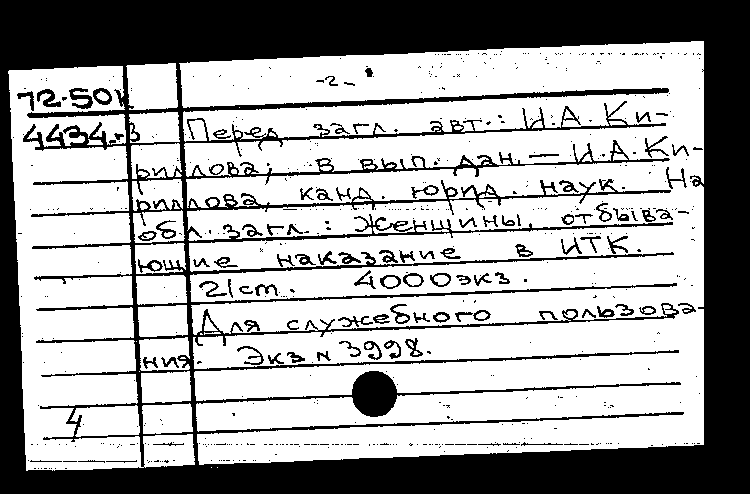 -2-
72-50к
4434-3
Перед загл. авт.: И.А. Ки-
риллова; в вып. дан. — И.А. Ки-
риллова, канд. юрид. наук. На
обл. загл.: Женщины, отбыва-
ющие наказание в ИТК.
21 ст. 4000 экз.
Для служебного пользова-
ния. Экз № 3998.
4